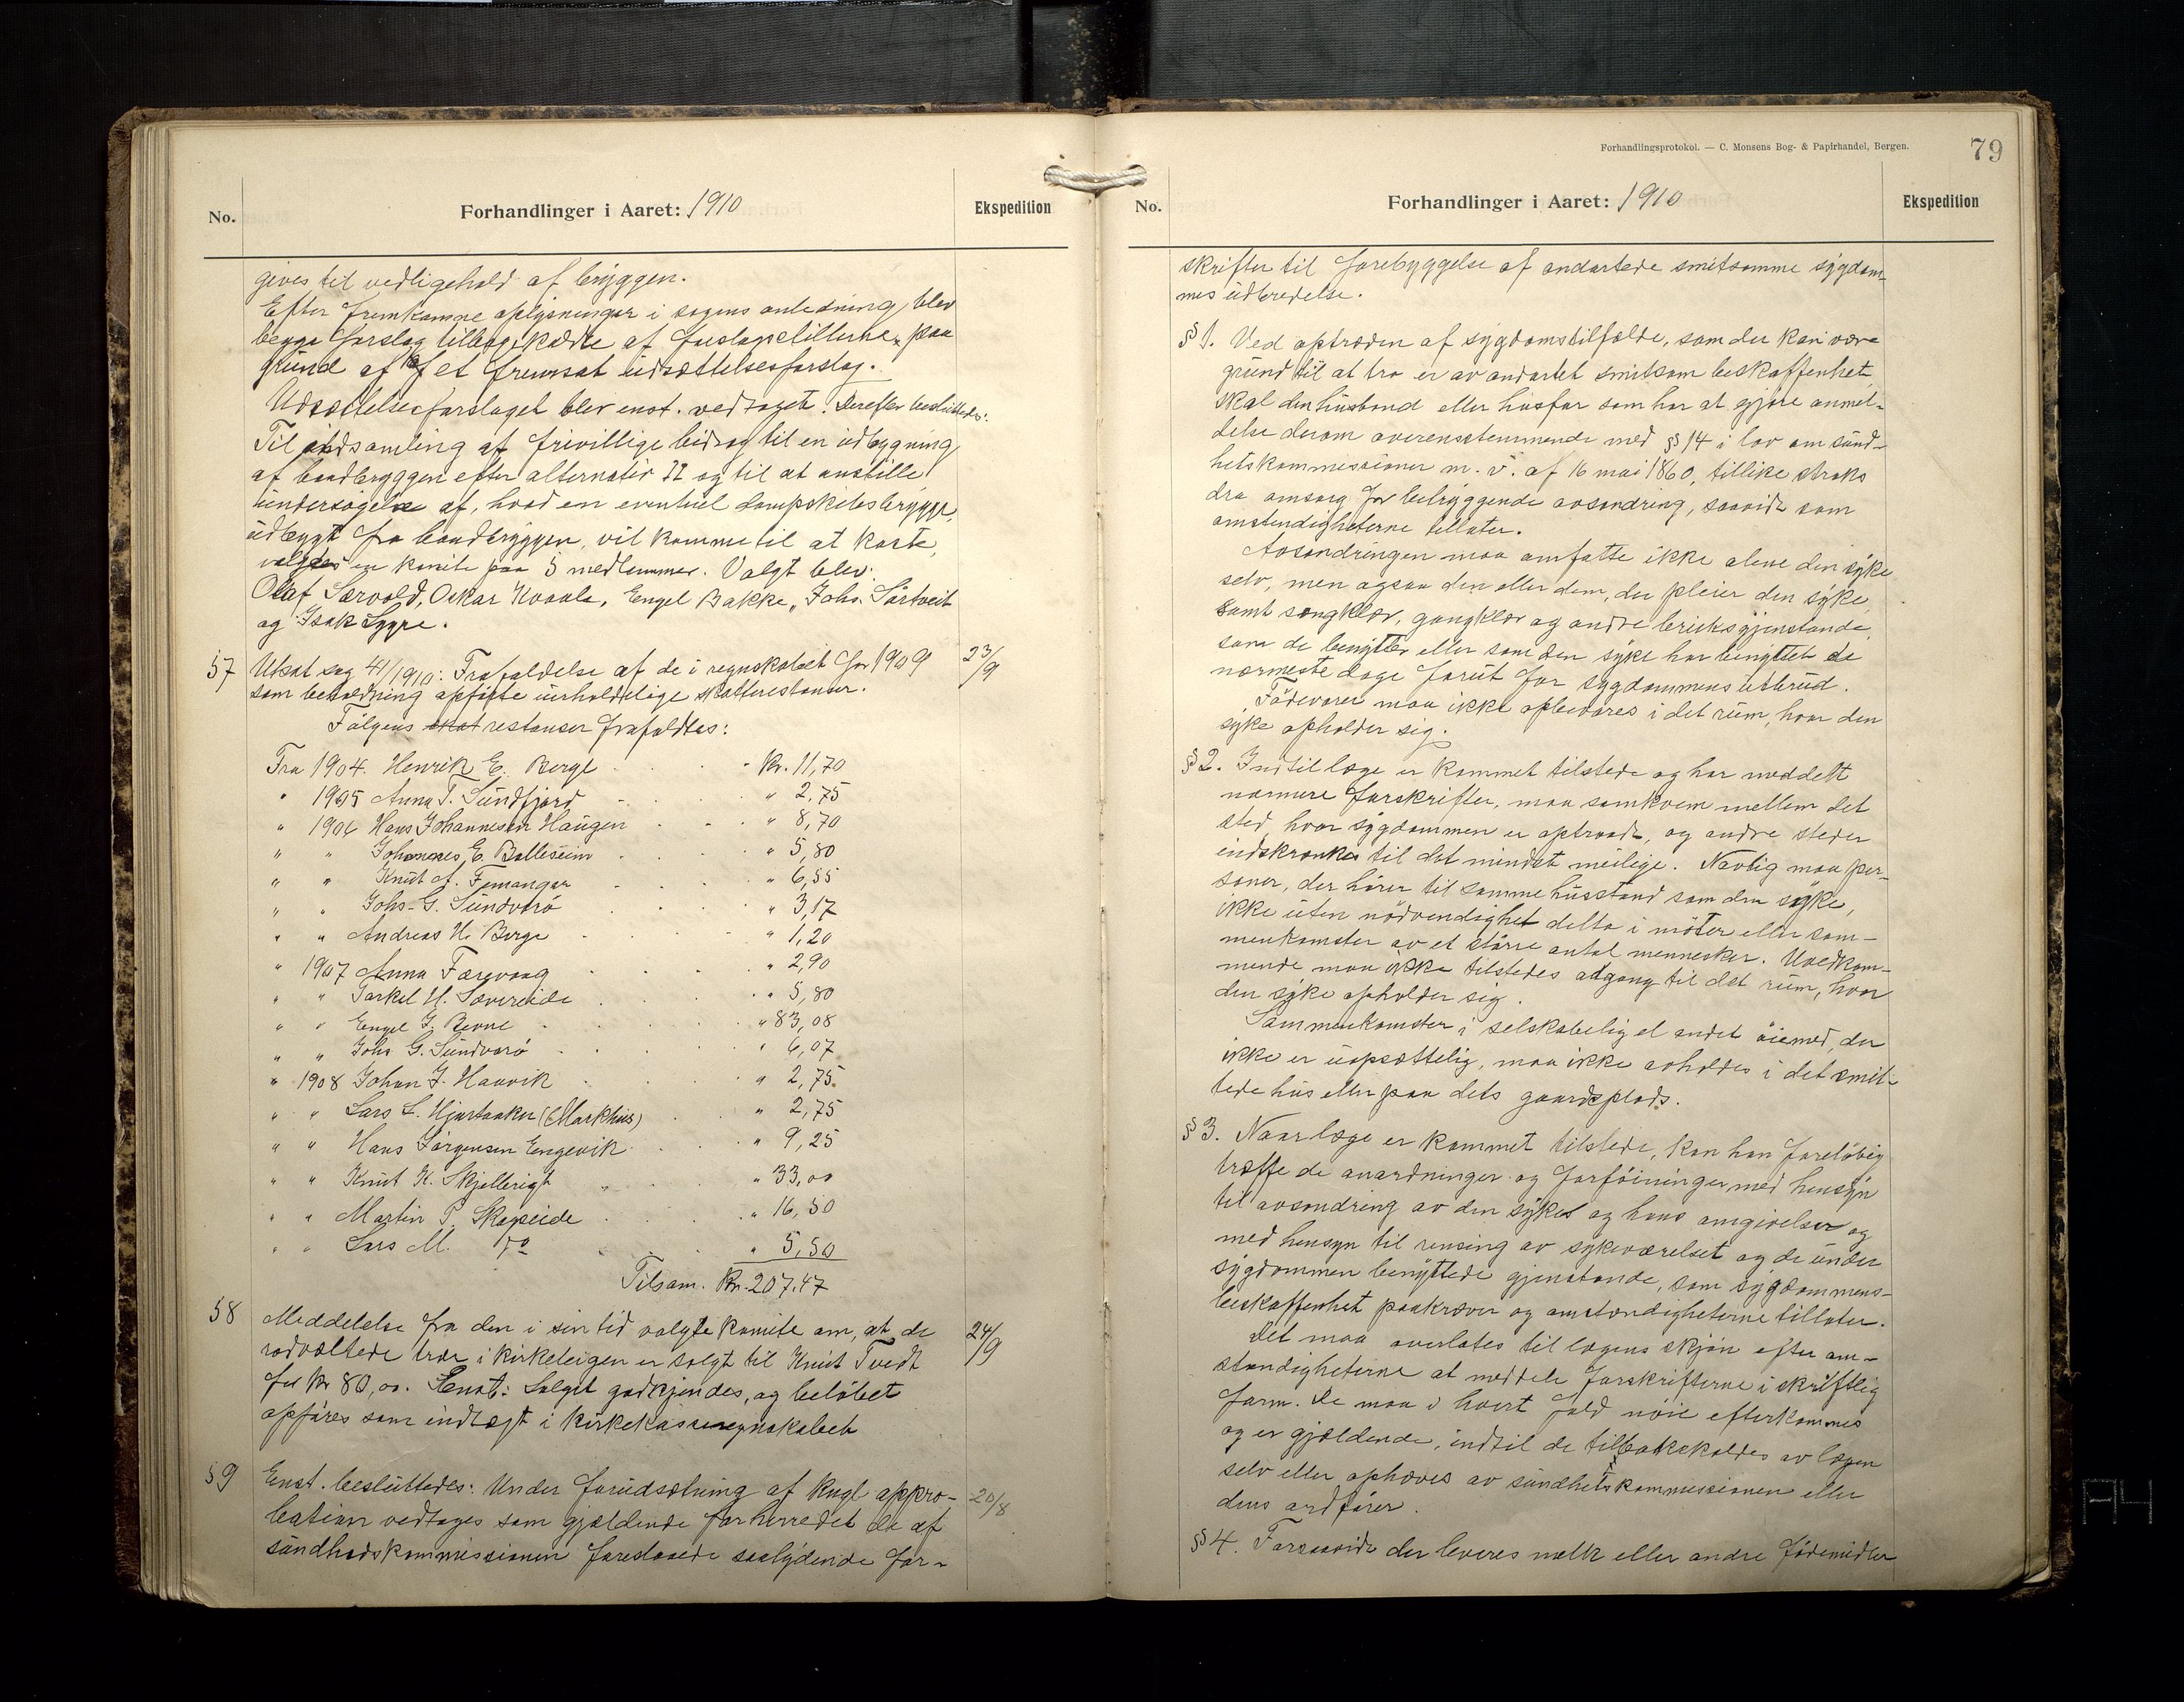 No.
Forhandlinger i Aaret: 1910
Ekspedition
gives til vedligehold af bryggen.
Efter fremkomne oplysninger i sagens anledning, blev
begge forslag tilbagekaldte af forslagsstillerne, paa
grund af et fremsat udsættelsesforslag.
Udsættelsesforslaget blev enst. vedtaget. Derefter besluttedes:
Til indsamling af frivillige bidrag til en udbygning
af baadbryggen efter alternativ II og til at anstille
undersøgelse af, hvad en eventuel dampskibsbrygge,
udbygt fra baadbryggen, vil komme til at koste,
valgtes en komite paa 5 medlemmer. Valgt blev:
Olaf Særvold, Oskar Kvaale, Engel Bakke, Johs. Sörtveit
og Isak Sygre.
57
Utsat sag 41/1910: Frafaldelse af de i regnskabet for 1909
23/9
som beholdning opførte uerholdelige skatterestanser.
Følgens skat restanser frafaldtes:
Fra 1904. Henrik E. Berge Kr. 11,70
" 1905 Anna T. Sundfjord " 2,75
" 1906 Hans Johannesen Haugen " 8,70
" " Johannes E. Balleseim " 5,80
" " Knut A. Femanger " 6,55
" " Johs. G. Sundvorö " 3,17
" " Andreas H. Berge " 1,20
" 1907 Anna Færevaag " 2,90
" " Torkel H. Sævereide " 5,80
" " Engel J. Berve " 83,08
" " Johs G. Sundvorö " 6,07
" 1908 Johan J. Haavik " 2,75
" " Lars L. Hjortaaker (Markhus) " 2,75
" " Hans Jörgensen Engevik " 9,25
" " Knut K. Skjellevigt " 33,00
" " Martin P. Skogseide " 16,50
" " Lars M. do " 5,50
Tilsam. Kr. 207.47
58
Meddelelse fra den i sin tid valgte komite om, at de
24/9
rodvæltede trær i kirkeleigen er solgt til Knut Tvedt
for kr 80,00. Enst.: Salget godkjendes, og beløbet
opføres som indtægt i kirkekasseregnskabet
59
Enst. besluttedes: Under forudsætning af kngl appro-
20/8
bation vedtages som gjældende for herredet de af
sundhedskommissionen foreslaaede saalydende for-
Forhandlingsprotokol. — C. Monsens Bog- & Papirhandel, Bergen.
79
No.
Forhandlinger i Aaret: 1910
Ekspedition
skrifter til forebyggelse af ondartede smitsomme sygdom-
mes udbredelse.
§ 1. Ved optræden af sygdomstilfælde, som der kan være
grund til at tro er av ondartet smitsom beskaffenhet,
skal den husbond eller husfar som har at gjøre anmel-
delse derom overensstemmende med § 14 i lov om sund-
hetskommissioner m. v. af 16 mai 1860, tillike straks
dra omsorg for betryggende avsondring, saavidt som
omstendigheterne tillater.
Avsondringen maa omfatte ikke alene den syke
selv, men ogsaa den eller dem, der pleier den syke,
samt sengklær, gangklær og andre bruksgjenstande,
som de benytter eller som den syke har benyttet de
nærmeste dage forut for sygdommens utbrud.
Fødevarer maa ikke opbevares i det rum, hvor den
syke opholder sig.
§ 2. Indtil læge er kommet tilstede og har meddelt
nærmere forskrifter, maa samkvem mellem det
sted, hvor sygdommen er optraadt, og andre steder
indskrænkes til det mindst mulige. Navlig maa per-
soner, der hører til samme husstand som den syke,
ikke uten nödvendighet delta i möter eller sam-
menkomster av et större antal mennesker. Uvedkom-
mende maa ikke tilstedes adgang til det rum, hvor
den syke opholder sig.
Sammenkomster i selskabelig el andet øiemed, der
ikke er uopsættelig, maa ikke avholdes i det smit-
tede hus eller paa dets gaardsplads.
§ 3. Naar læge er kommet tilstede, kan han foreløbig
træffe de anordninger og forföininger med hensyn
til avsondring av den syke og hans omgivelser og
med hensyn til rensing av sykeværelset og de under
sygdommen benyttede gjenstande, som sygdommens-
beskaffenhet paakræver og omstændigheterne tillater.
Det maa overlates til lægens skjøn efter om-
stændigheterne at meddele forskrifterne i skriftlig
form. De maa i hvert fald nöie efterkommes
og er gjældende, indtil de tilbakekaldes av lægen
selv eller ophæves av sundhetskommissionen eller
dens ordfører.
§ 4. Forsaavidt der leveres melk eller andre fødemidler